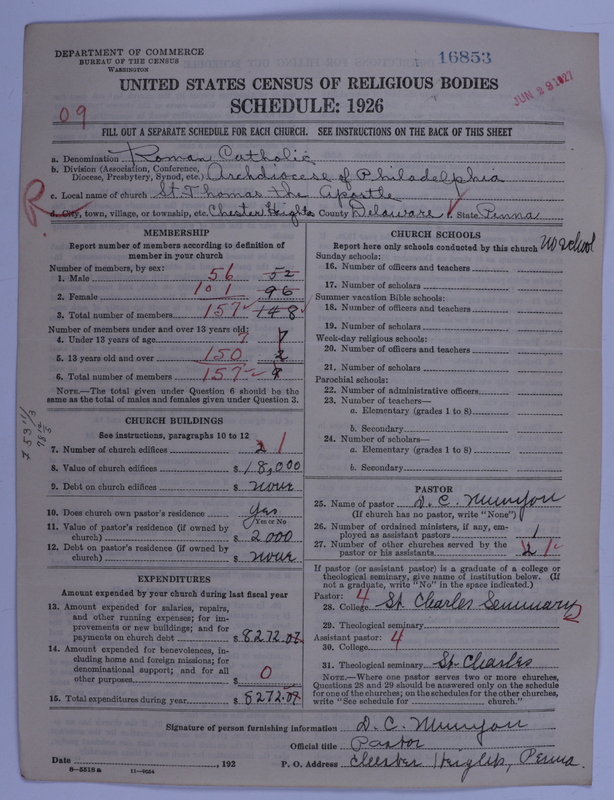 DEPARTMENT OF COMMERCE
BUREAU OF THE CENSUS
WASHINGTON
16853
UNITED STATES CENSUS OF RELIGIOUS BODIES
JUN 29 1927
SCHEDULE: 1926
09
FILL OUT A SEPARATE SCHEDULE FOR EACH CHURCH. SEE INSTRUCTIONS ON THE BACK OF THIS SHEET
a. Denomination Roman Catholic
b. Division (Association, Conference, Diocese, Presbytery, Synod, etc.) Archdiocese of Philadelphia
c. Local name of church St. Thomas the Apostle
d. City, town, village, or township, etc. Chester Heights County Delaware State Penna
R.
MEMBERSHIP
Report number of members according to definition of
member in your church
Number of members, by sex:
1. Male 56 52
2. Female 101 96
3. Total number of members 157 148
Number of members under and over 13 years old:
4. Under 13 years of age 7 7
5. 13 years old and over 150 2
6. Total number of members 157 9
NOTE.—The total given under Question 6 should be
same as the total of males and females given under Question 3.
CHURCH BUILDINGS
See instructions, paragraphs 10 to 12
7. Number of church edifices 2 1
8. Value of church edifices $ 18,000
9. Debt on church edifices $ none
10. Does church own pastor's residence Yes
Yes or No
11. Value of pastor's residence (if owned by
church) $ 2000
12. Debt on pastor's residence (if owned by
church) $ none
EXPENDITURES
Amount expended by your church during last fiscal year
13. Amount expended for salaries, repairs,
and other running expenses; for im-
provements or new buildings; and for
payments on church debt $ 8272.07
14. Amount expended for benevolences, in-
cluding home and foreign missions; for
denominational support; and for all
other purposes $ 0
15. Total expenditures during year $ 8272.07
CHURCH SCHOOLS
Report here only schools conducted by this church no school
Sunday schools:
16. Number of officers and teachers
17. Number of scholars
Summer vacation Bible schools:
18. Number of officers and teachers
19. Number of scholars
Week-day religious schools:
20. Number of officers and teachers
21. Number of scholars
Parochial schools:
22. Number of administrative officers
23. Number of teachers—
a. Elementary (grades 1 to 8)
b. Secondary
24. Number of scholars—
a. Elementary (grades 1 to 8)
b. Secondary
PASTOR
25. Name of pastor D. C. Munyon
(If church has no pastor, write "None")
26. Number of ordained ministers, if any, em-
ployed as assistant pastors 1
27. Number of other churches served by the
pastor or his assistants 2 1
If pastor (or assistant pastor) is a graduate of a college or
theological seminary, give name of institution below. (If
not a graduate, write "No" in the space indicated.)
Pastor: 4
28. College St. Charles Seminary
29. Theological seminary
Assistant pastor: 4
30. College
31. Theological seminary St. Charles
NOTE.—Where one pastor serves two or more churches,
Questions 28 and 29 should be answered only on the schedule
for one of the churches; on the schedules for the other churches,
write "See schedule for church."
Signature of person furnishing information D. C. Munyon
Official title Pastor
Date , 192 P. O. Address Chester Heights, Penna.
8—5518a 11—9024